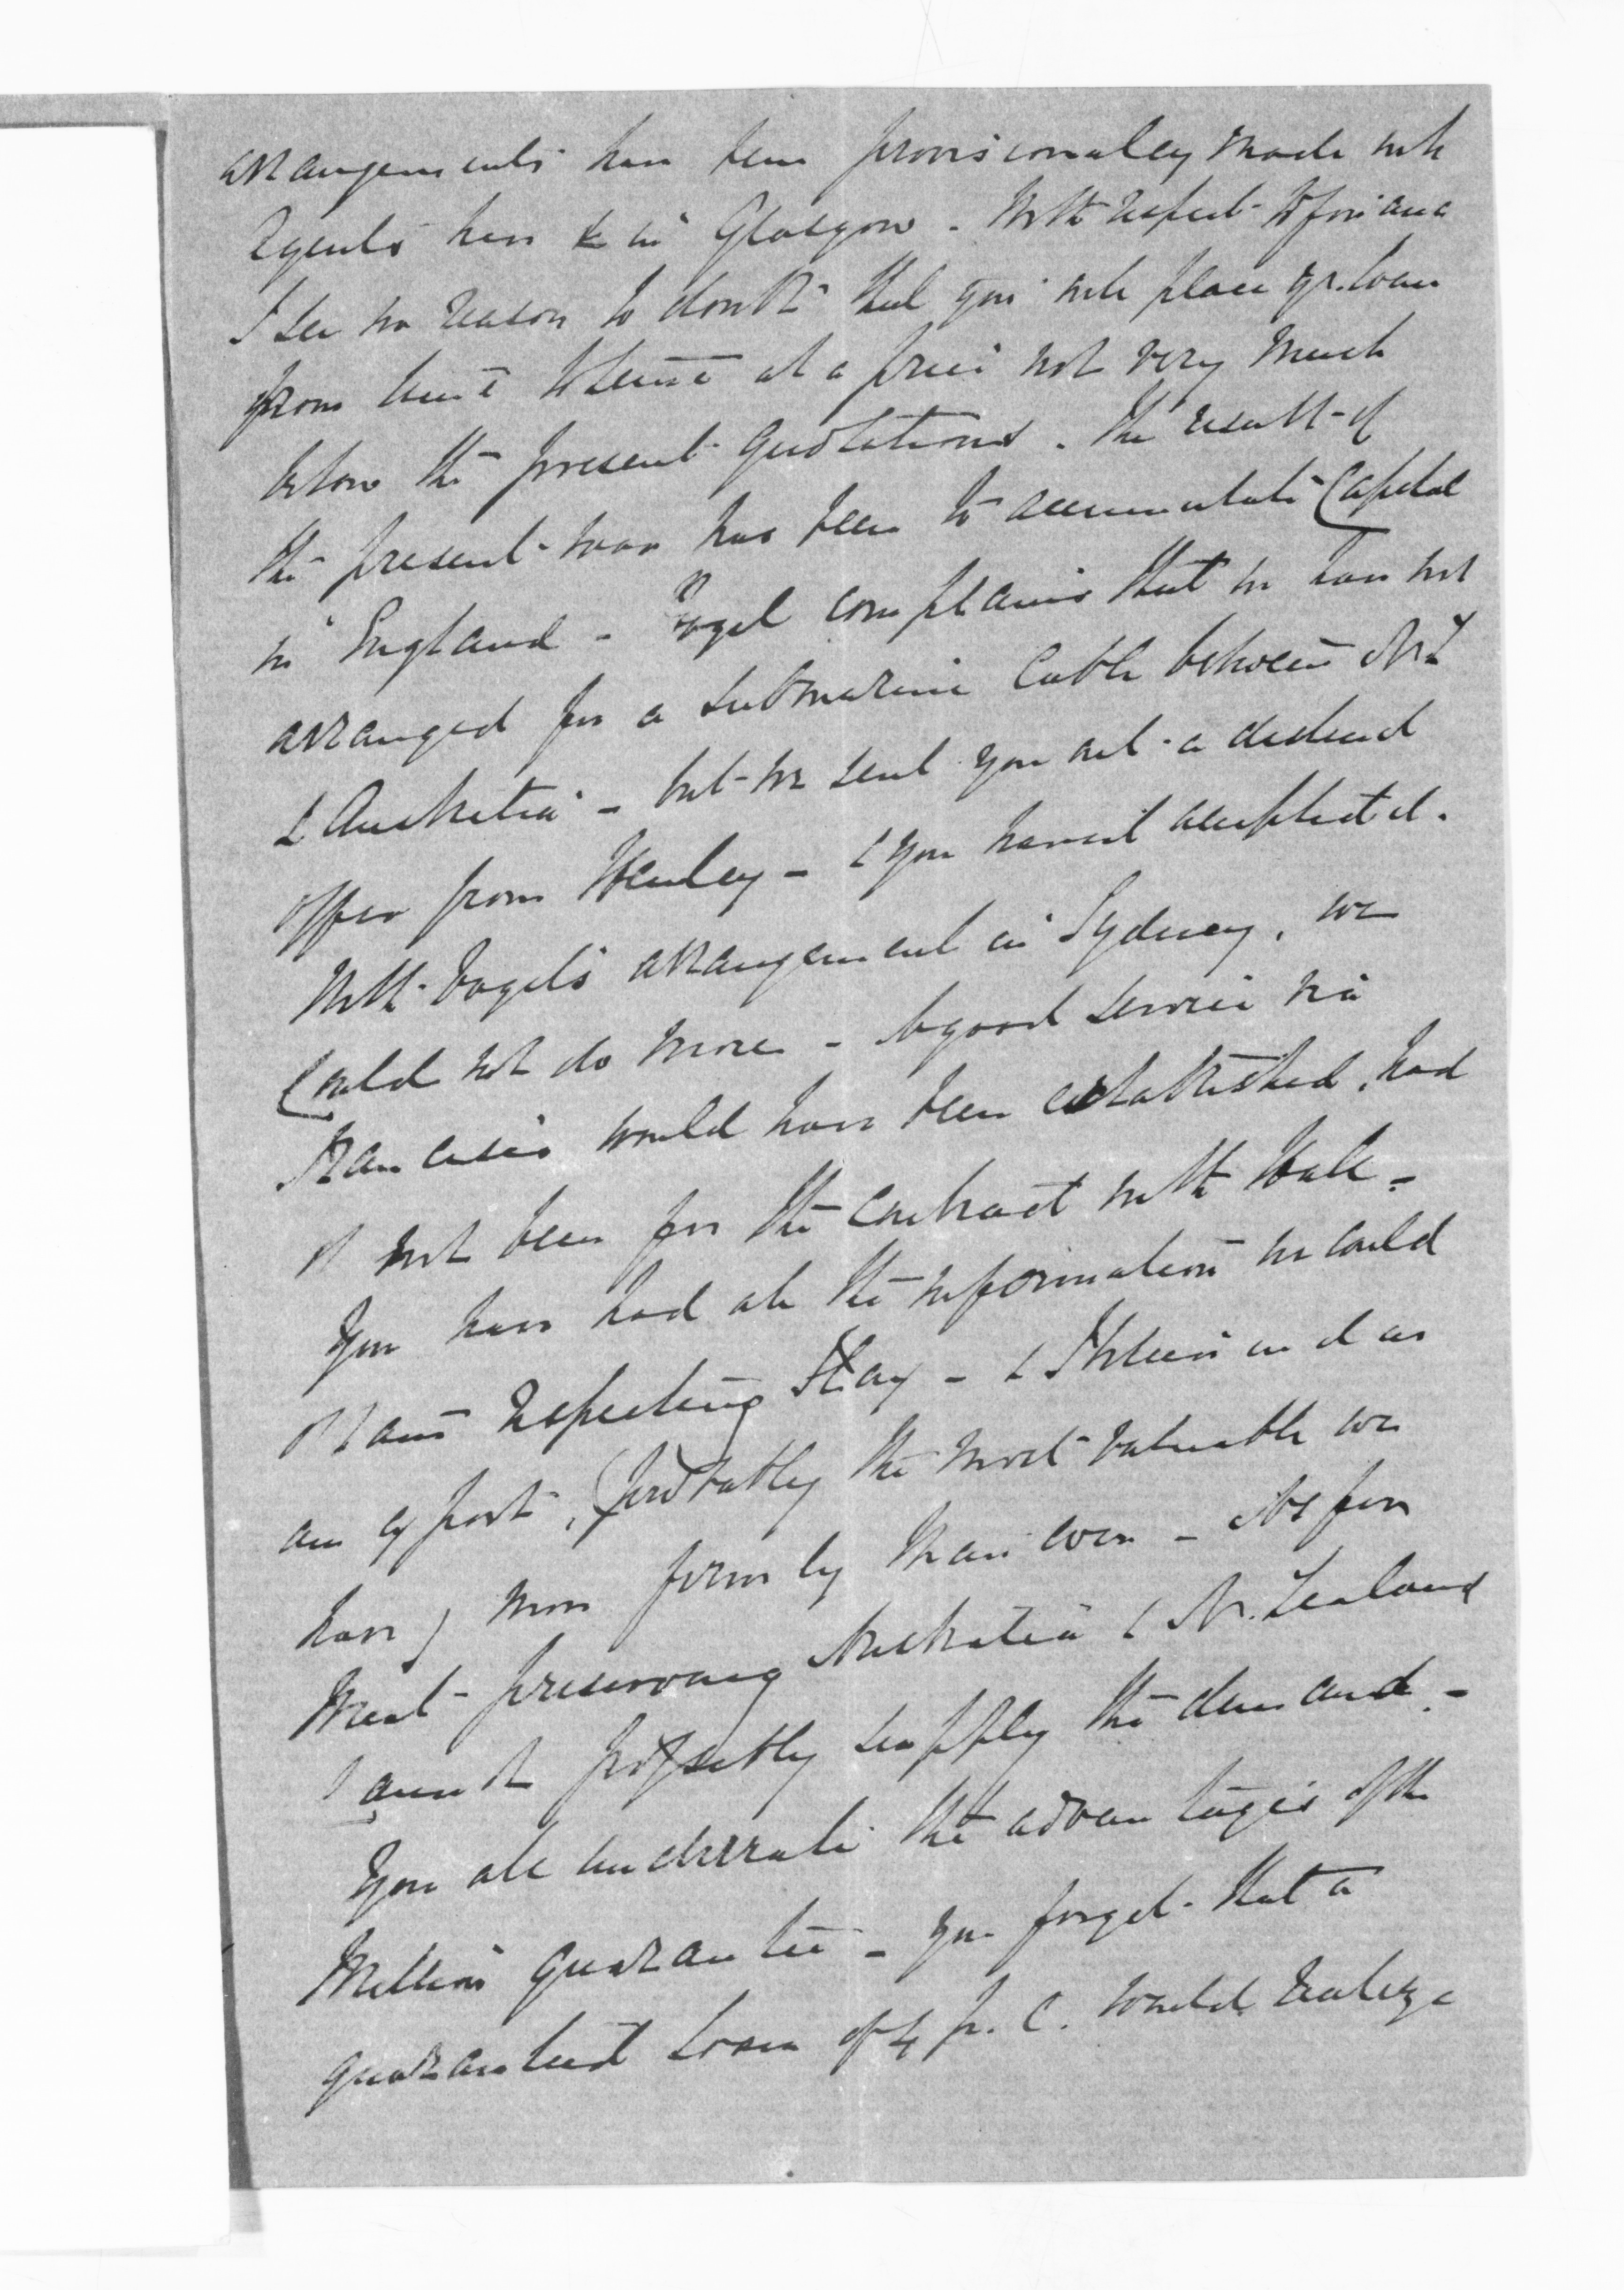 arrangements have been provisionally made with
Agents here & in Glasgow. With respect to finance
I see no reason to doubt that you will place yr. loan
from time to time at a price not very much
below the present quotations. The result of
the present war has been to accumulate Capital
in England - Vogel complains that we have not
arranged for a submarine Cable between N.Z
& Australia - but we sent you out a declared
offer from Henley - & you havent accepted it.
With Vogel's arrangement in Sydney, we
Could not do more - A good service via
Francisco would have been established, had
it not been for the contract with Hall -
You have had all the information we could
obtain respecting Flax - & I believe in it as
an export, (probably the most valuable we
have) more firmly than ever - As for
Meat-preserving Australia & N. Zealand
cannot possibly supply the demand. -
You all underrate the advantages of the
Million guarantee - You forget that a
guaranteed Loan of 4 p. c. would realize